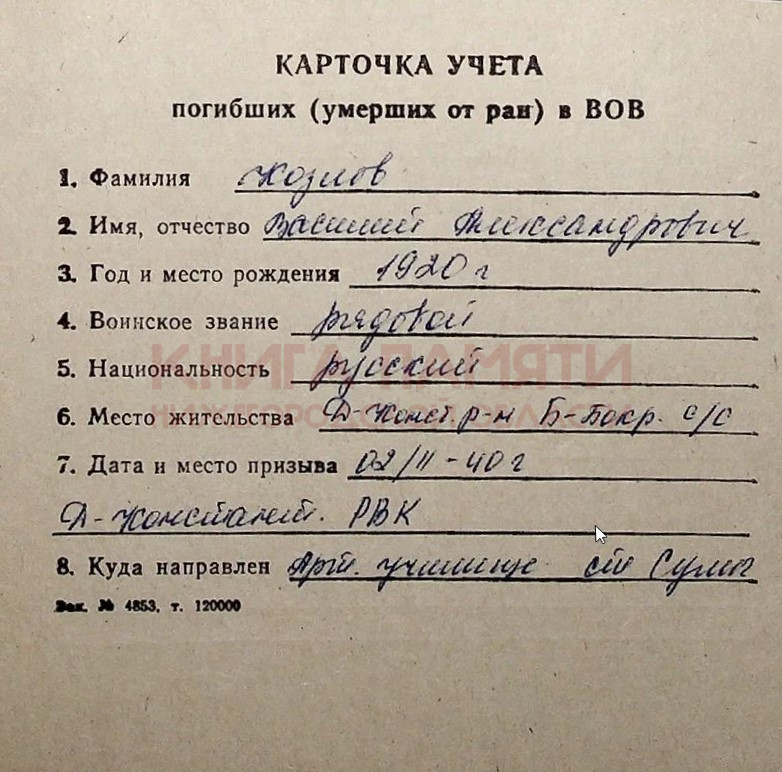 КАРТОЧКА УЧЕТА
погибших (умерших от ран) в ВОВ
1. Фамилия Козлов
2. Имя, отчество Василий Александрович
3. Год и место рождения 1920 г
4. Воинское звание рядовой
КНИГА ПАМЯТИ
5. Национальность русский
6. Место жительства Д-Конст. р-н Б-Бакр. с/с
НИЖЕГОРОДСКОЙ ОБЛАСТИ
7. Дата и место призыва 02/II-40 г
Д-Констант. РВК
8. Куда направлен Арт. училище ст Сумы
Зак. № 4853, т. 120000